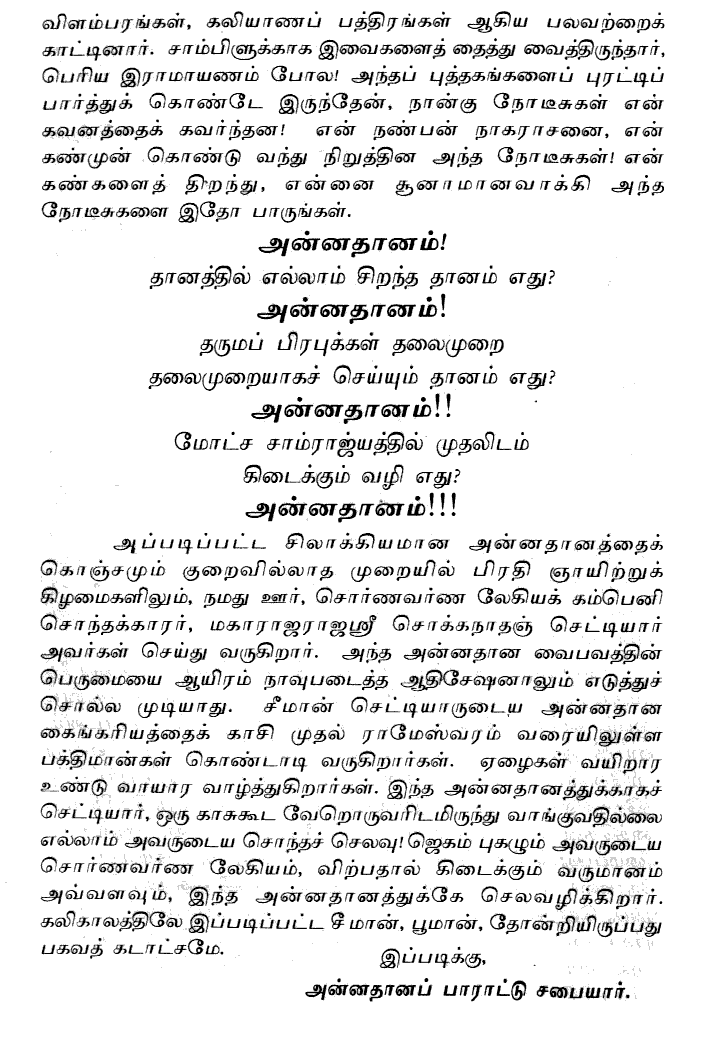 விளம்பரங்கள், கலியாணப் பத்திரங்கள் ஆகிய பலவற்றைக்
காட்டினார். சாம்பிளுக்காக இவைகளைத் தைத்து வைத்திருந்தார்,
பெரிய இராமாயணம் போல! அந்தப் புத்தகங்களைப் புரட்டிப்
பார்த்துக் கொண்டே இருந்தேன், நான்கு நோடீசுகள் என்
கவனத்தைக் கவர்ந்தன! என் நண்பன் நாகராசனை, என்
கண்முன் கொண்டு வந்து நிறுத்தின அந்த நோடீசுகள்! என்
கண்களைத் திறந்து, என்னை சூனாமானவாக்கி அந்த
நோடீசுகளை இதோ பாருங்கள்.
அன்னதானம்!
தானத்தில் எல்லாம் சிறந்த தானம் எது?
அன்னதானம்!
தருமப் பிரபுக்கள் தலைமுறை
தலைமுறையாகச் செய்யும் தானம் எது?
அன்னதானம்!!
மோட்ச சாம்ராஜ்யத்தில் முதலிடம்
கிடைக்கும் வழி எது?
அன்னதானம்!!!
அப்படிப்பட்ட சிலாக்கியமான அன்னதானத்தைக்
கொஞ்சமும் குறைவில்லாத முறையில் பிரதி ஞாயிற்றுக்
கிழமைகளிலும், நமது ஊர், சொர்ணவர்ண லேகியக் கம்பெனி
சொந்தக்காரர், மகாராஜராஜஸ்ரீ சொக்கநாதஞ் செட்டியார்
அவர்கள் செய்து வருகிறார். அந்த அன்னதான வைபவத்தின்
பெருமையை ஆயிரம் நாவுபடைத்த ஆதிசேஷனாலும் எடுத்துச்
சொல்ல முடியாது. சீமான் செட்டியாருடைய அன்னதான
கைங்கரியத்தைக் காசி முதல் ராமேஸ்வரம் வரையிலுள்ள
பக்திமான்கள் கொண்டாடி வருகிறார்கள். ஏழைகள் வயிறார
உண்டு வாயார வாழ்த்துகிறார்கள். இந்த அன்னதானத்துக்காகச்
செட்டியார், ஒரு காசுகூட வேறொருவரிடமிருந்து வாங்குவதில்லை
எல்லாம் அவருடைய சொந்தச் செலவு! ஜெகம் புகழும் அவருடைய
சொர்ணவர்ண லேகியம், விற்பதால் கிடைக்கும் வருமானம்
அவ்வளவும், இந்த அன்னதானத்துக்கே செலவழிக்கிறார்.
கலிகாலத்திலே இப்படிப்பட்ட சீமான், பூமான், தோன்றியிருப்பது
பகவத் கடாட்சமே.
இப்படிக்கு,
அன்னதானப் பாராட்டு சபையார்.